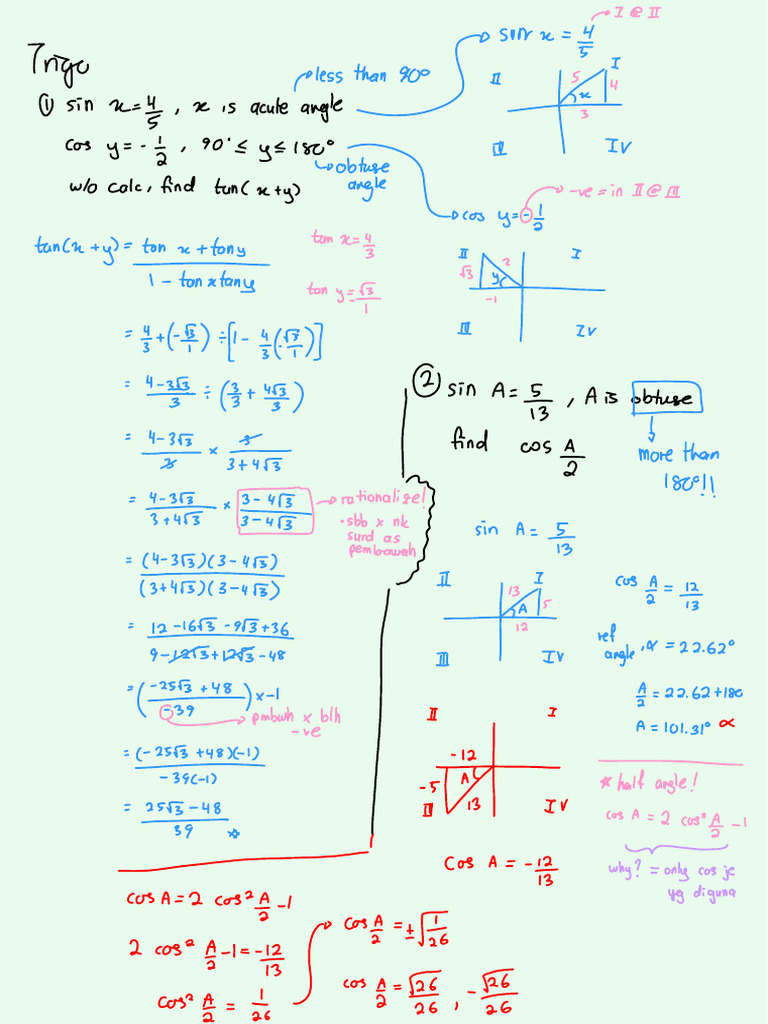 Trigo
① sin x = 4/5 , x is acute angle
less than 90°
cos y = - 1/2 , 90° ≤ y ≤ 180°
obtuse angle
w/o calc, find tan(x+y)
sin x = 4/5
I @ II
II
I
5
4
x
3
III
IV
cos y = - 1/2
-ve = in II @ III
II
I
√3
2
y
-1
III
IV
tan(x+y) = tan x + tan y / 1 - tan x tan y
tan x = 4/3
tan y = √3/1
= 4/3 + (-√3/1) ÷ [1 - 4/3 (-√3/1)]
= 4-3√3/3 ÷ (3/3 + 4√3/3)
= 4-3√3/3 × 3/3+4√3
= 4-3√3/3+4√3 × 3-4√3/3-4√3
rationalize!
• sbb x nk
surd as
pembawah
= (4-3√3)(3-4√3)/(3+4√3)(3-4√3)
= 12-16√3-9√3+36/9-12√3+12√3-48
= (-25√3+48/-39) × -1
pmbwh x blh
-ve
= (-25√3+48)(-1)/-39(-1)
= 25√3-48/39
② sin A = 5/13 , A is obtuse
find cos A/2
more than
180°!!
sin A = 5/13
II
I
13
5
A
12
III
IV
cos A/2 = 12/13
ref angle, α = 22.62°
A/2 = 22.62 + 180
A = 101.31° α
II
I
-12
-5
A
13
III
IV
cos A = -12/13
* half angle!
cos A = 2 cos² A/2 - 1
why? = only cos je
yg diguna
cos A = 2 cos² A/2 - 1
2 cos² A/2 - 1 = -12/13
cos² A/2 = 1/26
cos A/2 = ±√1/26
cos A/2 = √26/26 , -√26/26